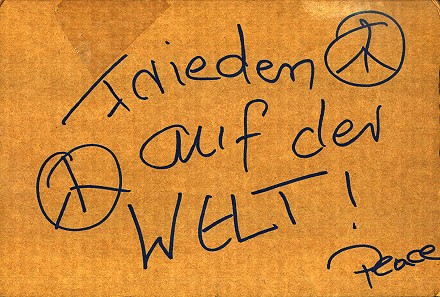 Frieden
auf der
WELT!
Peace